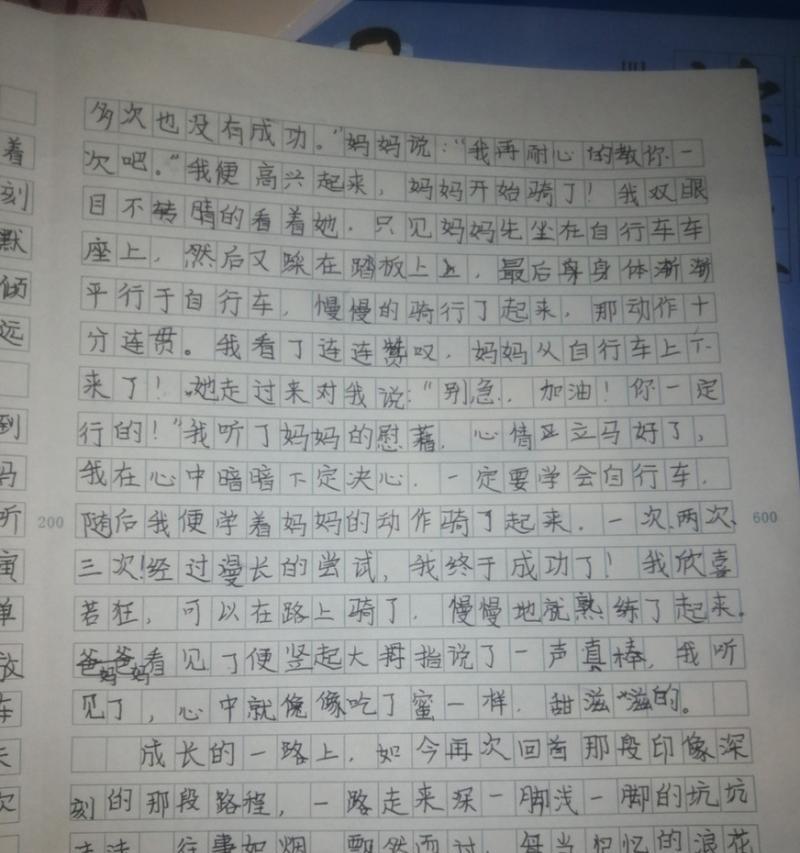 多次也没有成功。”妈妈说：“我再耐心的教你一
次吧。”我便高兴起来，妈妈开始骑了！我双眼
目不转睛的看着她．只见妈妈先坐在自行车车
座上，然后又踩在踏板上上，最后身身体渐渐
平行于自行车，慢慢的骑行了起来，那动作十
分连贯。我看了连连赞叹，妈妈从自行车上下
来了！她走过来对我说：“别急，加油！你一定
行的！”我听了妈妈的慰藉，心情立马好了，
我在心中暗暗下定决心．一定要学会自行车．
200 随后我便学着妈妈的动作骑了起来．一次、两次、 600
三次！经过漫长的尝试，我终于成功了！我欣喜
若狂，可以在路上骑了．慢慢地就熟练了起来．
爸爸看见了便竖起大拇指说了一声真棒，我听
妈妈
见了，心中就像像吃了蜜一样．甜滋滋的。
成长的一路上，如今再次回首那段印像深
刻的那段路程，一路走来深一脚浅一脚的坑坑
往事如烟 飘然而过 每当记忆的浪花
着
刻
默
倾
远
到
妈
听
寅
单
放
车
天
次